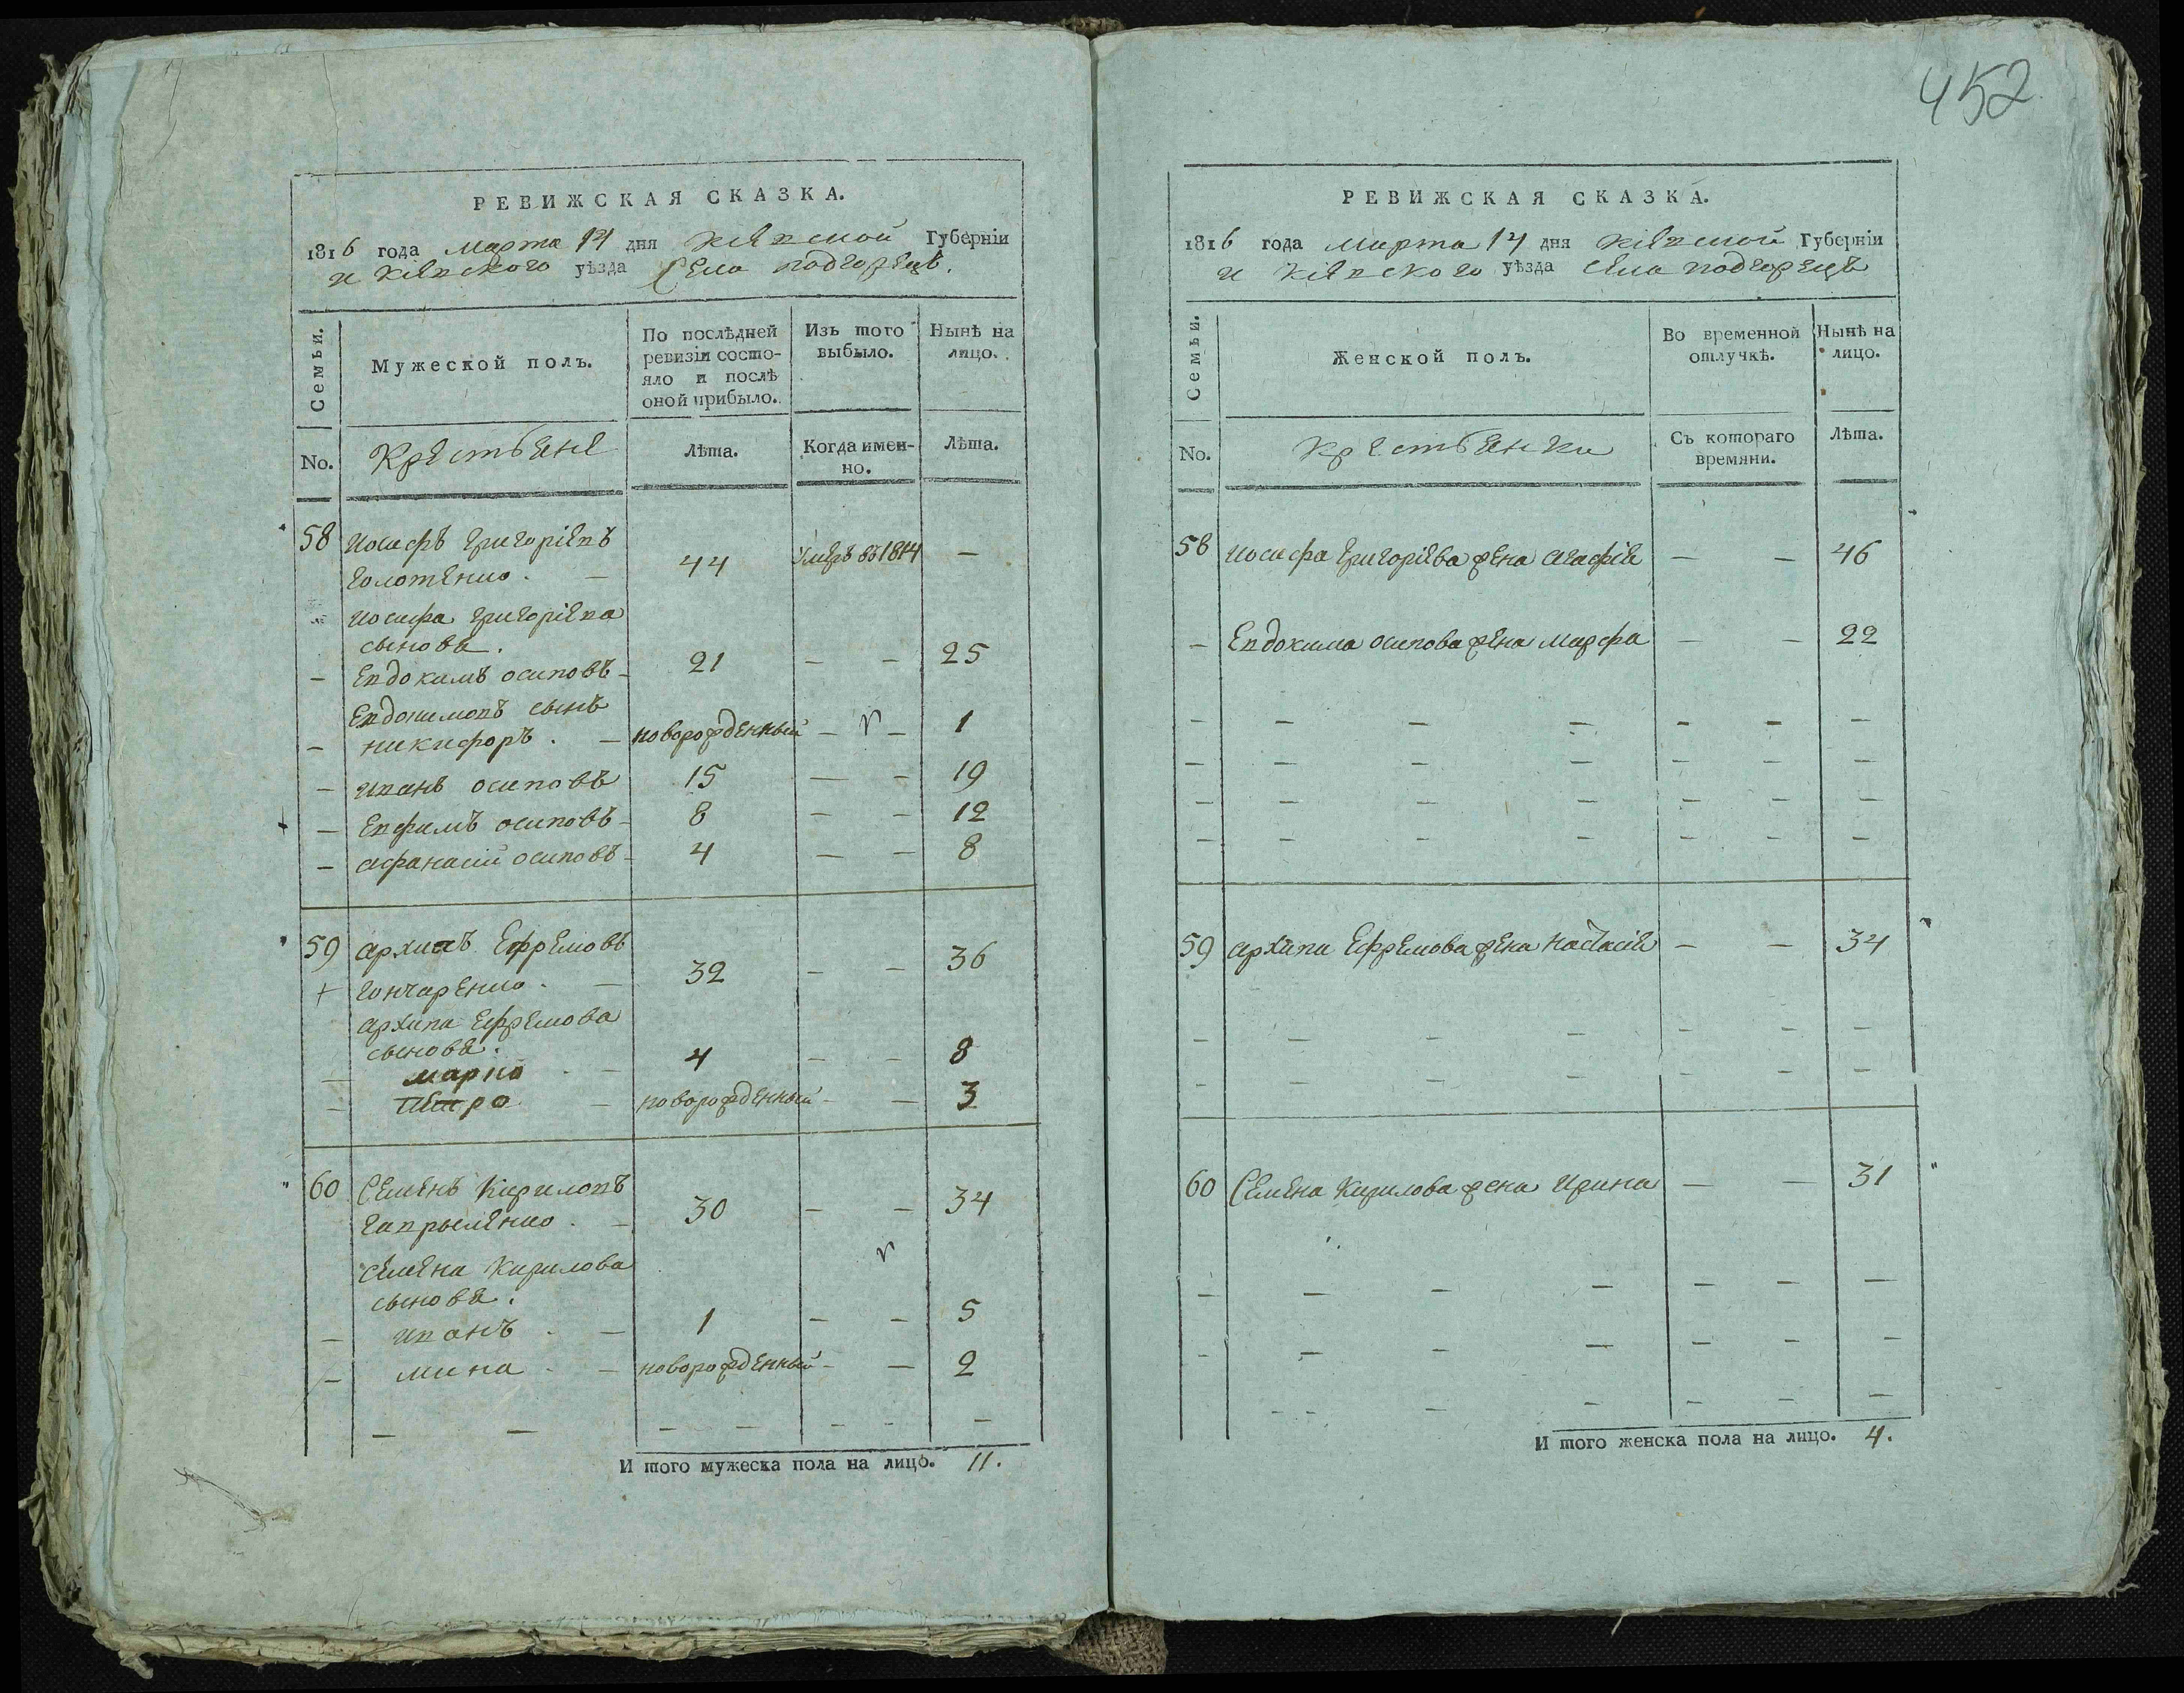 452
РЕВИЖСКАЯ СКАЗКА.
1816 года марта 14 дня Кіевской Губерніи
и Кіевского уѣзда Села подгорецъ.
Семьи.
Мужеской полъ.
По послѣдней ревизіи состояло и послѣ оной прибыло.
Изъ того выбыло.
Нынѣ на лицо.
No.
Крестьяне
Лѣта.
Когда именно.
Лѣта.
58 иосифъ григоріевъ
голотенко. — 44 умеръ въ 1814 —
иосифа григоріева
сыновя.
— Евдокимъ осиповъ — 21 — — 25
Евдокимовъ сынъ
— никифоръ. — новорожденный — — 1
— иванъ осиповъ 15 — — 19
— Евфимъ осиповъ — 8 — — 12
— афанасій осиповъ — 4 — — 8
59 архипъ Ефремовъ
+ гончаренко. — 32 — — 36
архипа Ефремова
сыновя.
— марко — 4 — — 8
— Петро — новорожденный — — 3
60 Семенъ Кириловъ
гаврыленко. — 30 — — 34
семена Кирилова
сыновя.
— иванъ — 1 — — 5
— мина — новорожденный — — 2
— — — — — — —
И того мужеска пола на лицо. 11.
РЕВИЖСКАЯ СКАЗКА.
1816 года марта 14 дня Кіевской Губерніи
и Кіевского уѣзда села подгорецъ
Семьи.
Женской полъ.
Во временной отлучкѣ.
Нынѣ на лицо.
No.
Крестьянки
Съ котораго времяни.
Лѣта.
58 иосифа григоріева жена агафія — — 46
— Евдокима осипова жена марфа — — 22
— — — — — — —
— — — — — — —
— — — — — — —
— — — — — — —
59 архипа Ефремова жена настасія — — 34
— — — — — — —
— — — — — — —
60 Семена Кирилова жена Ирина — — 31
— — — — — — —
— — — — — — —
— — — — — — —
И того женска пола на лицо. 4.